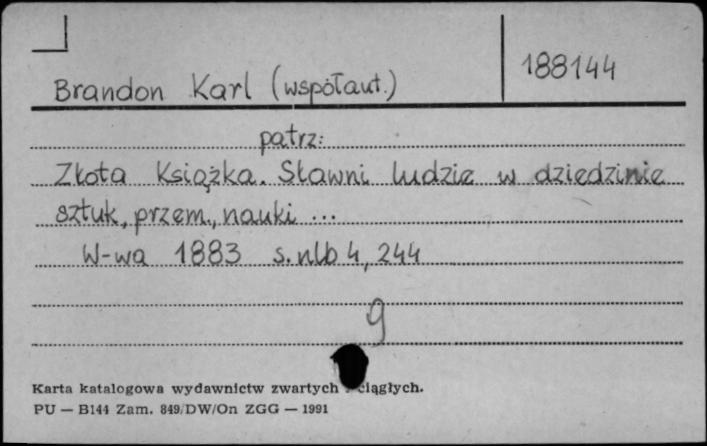 188144
Brandon Karl (współaut.)
patrz:
Złota Książka. Sławni ludzie w dziedzinie
sztuk, przem., nauki ...
W-wa 1883 s. nlb 4, 244
9
Karta katalogowa wydawnictw zwartych ciągłych.
PU — B144 Zam. 849/DW/On ZGG — 1991